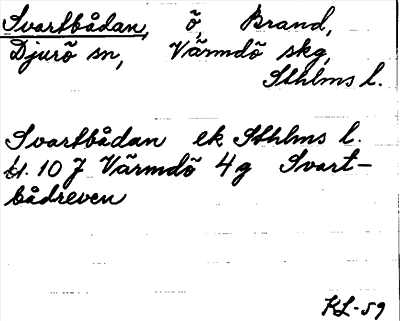 Svartbådan, ö, Brand,
Djurö sn, Värmdö skg,
Sthlms l.
Svartbådan ek Sthlms l.
bl. 10 J Värmdö 4g Svart-
bådreven
KL-59